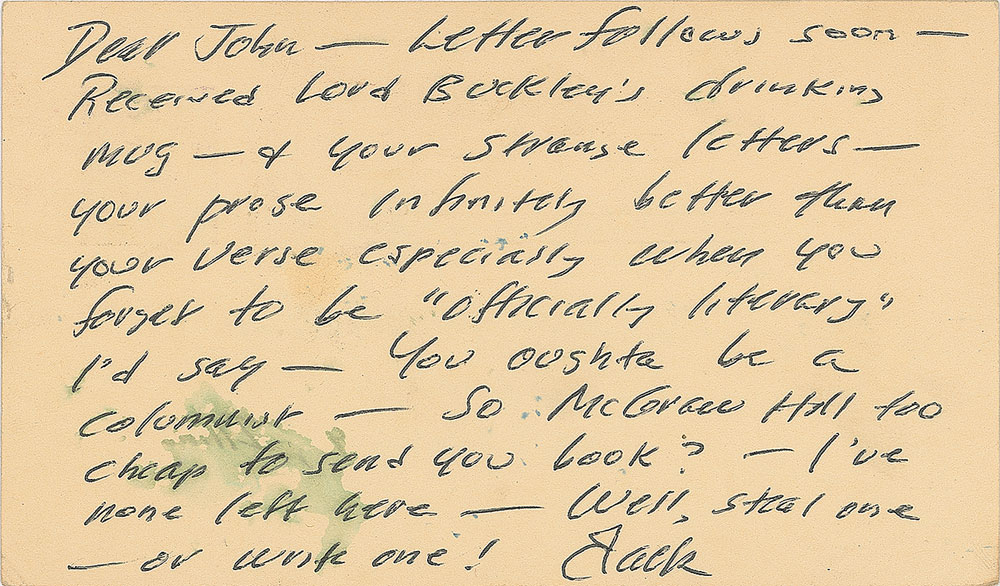 Dear John — Letter follows soon —
Received Lord Buckley's drinking
mug — & your strange letters —
your prose infinitely better than
your verse especially when you
forget to be "officially literary"
I'd say — You oughta be a
columnist — So McGraw Hill too
cheap to send you book? — I've
none left here — Well, steal one
— or write one! Jack